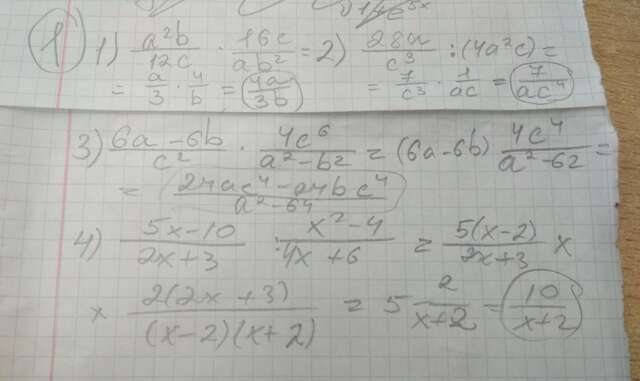 1) 1) a²b/12c · 16c/ab² = 2) 28a/c³ : (4a²c) =
= a/3 · 4/b = 4a/3b = 7/c³ · 1/ac = 7/ac⁴
3) 6a-6b/c² · 4c⁶/a²-b² = (6a-6b) 4c⁴/a²-b² =
= 24ac⁴-24bc⁴/a²-b⁴
4) 5x-10/2x+3 : x²-4/4x+6 = 5(x-2)/2x+3 ×
× 2(2x+3)/(x-2)(x+2) = 5 2/x+2 = 10/x+2